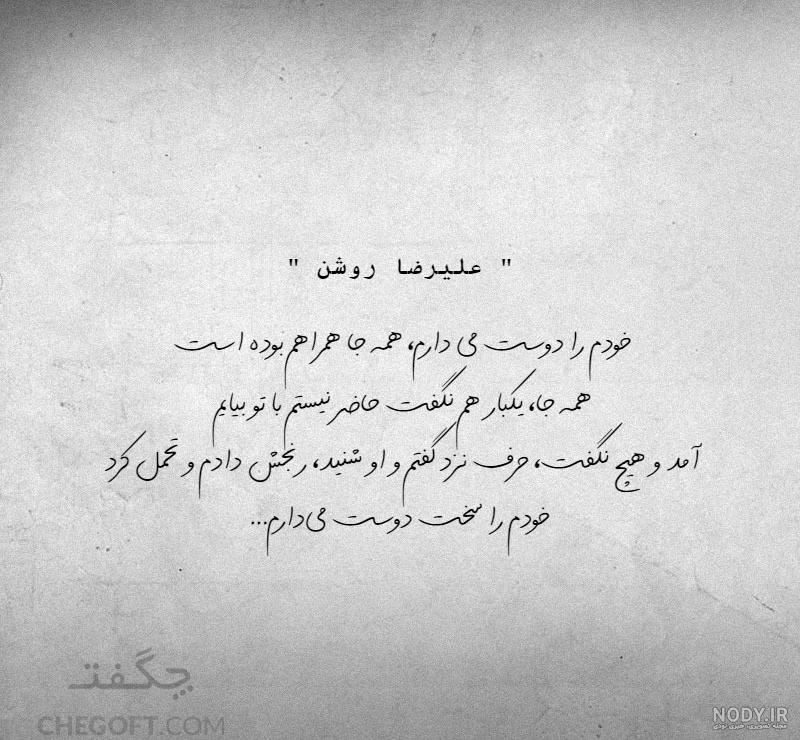 " علیرضا روشن "
خودم را دوست می دارم، همه جا همراهم بوده است
همه جا، یکبار هم نگفت حاضر نیستم با تو بیایم
آمد و هیچ نگفت، حرف نزد گفتم و او شنید، رنجش دادم و تحمل کرد
خودم را سخت دوست می‌دارم...
چگفت
CHEGOFT.COM
NODY.IR
مجله تصویری، خبری نودی